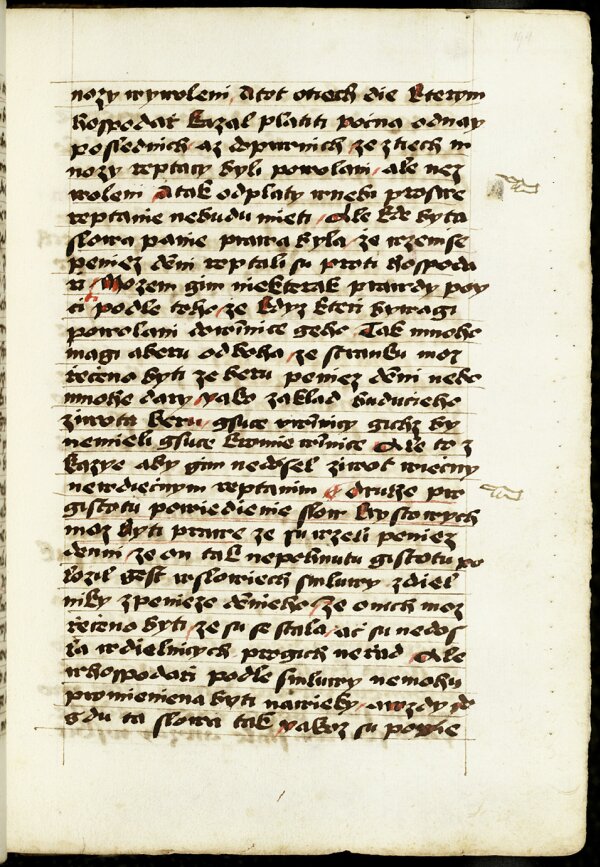 nozy wywoleni Atot otiech die kterym
hospodař kazal platiti počna odnay
poslednich az doprwnich ze ztiech m
nozy reptacy byli powolani ale nez
woleni Atak odplaty wnebi proswe
reptanie nebudu mieti Ale kde byta
slowa panie prawa byla ze wzemse
peniez deni reptali su proti hospoda
ři Mozem gim niekterak prawdy poy
ti podle toho ze kdyz kteři bywagi
powolani dowinice geho Tak mnoho
magi aberu odboha ze stranku moz
řečeno byti ze beru peniez deni nebo
mnohe dary yako zaklad buducieho
ziwota beru gsuce winicy gichz by
nemieli gsuce kromie winice Ale to z
kazye aby gim nedosel ziwot wiečny
newdiečnym reptanim Druhe pro
gistotu powiedienie slow krystowych
moz byti prawe ze su wzeli peniez
denni ze on tak nepohnutu gistotu po
lozil gest wslowiech smluwy zdiel
niky zpenieze denieho ze onich moz
řečeno byti ze su se stala ač su nedos
la wdielnicych progich neřad Ale
whospodaři podle smluwy nemohu
promieniena byti nawieky awzdy
gdu ta slowa tak yakoz su powie